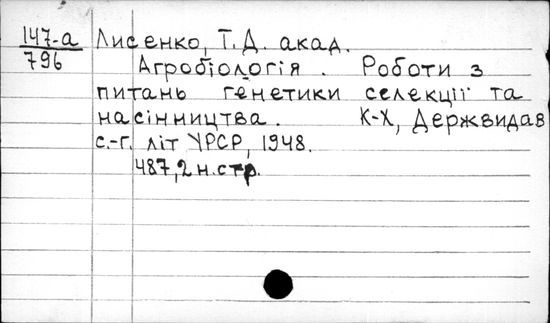 147-а Лисенко, Т.Д. акад.
796 Агробіологія. Роботи з
питань генетики селекції та
насінництва. К-Х, Держвидав
с.-г. літ УРСР, 1948.
487,2 н.стр.